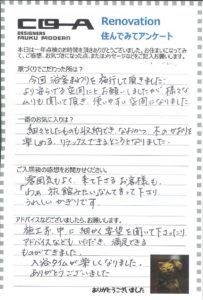 CGHA
DESIGNERS
FAUKU MODERN
Renovation
住んでみてアンケート
本日は一年点検のお時間を頂きありがとうございました。お住まいになってみ
て、ご感想、お気づきになった点、またはメッセージなどをご記入お願いします。
家づくりでこだわった所は?
今回浴室まわりを施行して頂きました。
より楽らする空間にとお願いしましたが 様々な
ムリも聞いて頂き 使いやすい空間になりました
一番のお気に入りは?
細々としたものも収納でき なおかつ 木のぬくもりを
楽しめる、リラックスできるところとなりました。
ご入居後の感想をお聞かせください。
雰囲気もよく 来て下さるお客様も、
「わぁ 旅館みたい」なんて言って下さり
うれしいかぎりです。
アドバイスなどございましたら、お願いします。
施工前、中に 細かく要望を聞いて下さったり
アドバイスなどもいただき、満足できる
ものができました。
入浴タイムが楽しくなりました。
ありがとうございました
ありがとうございました